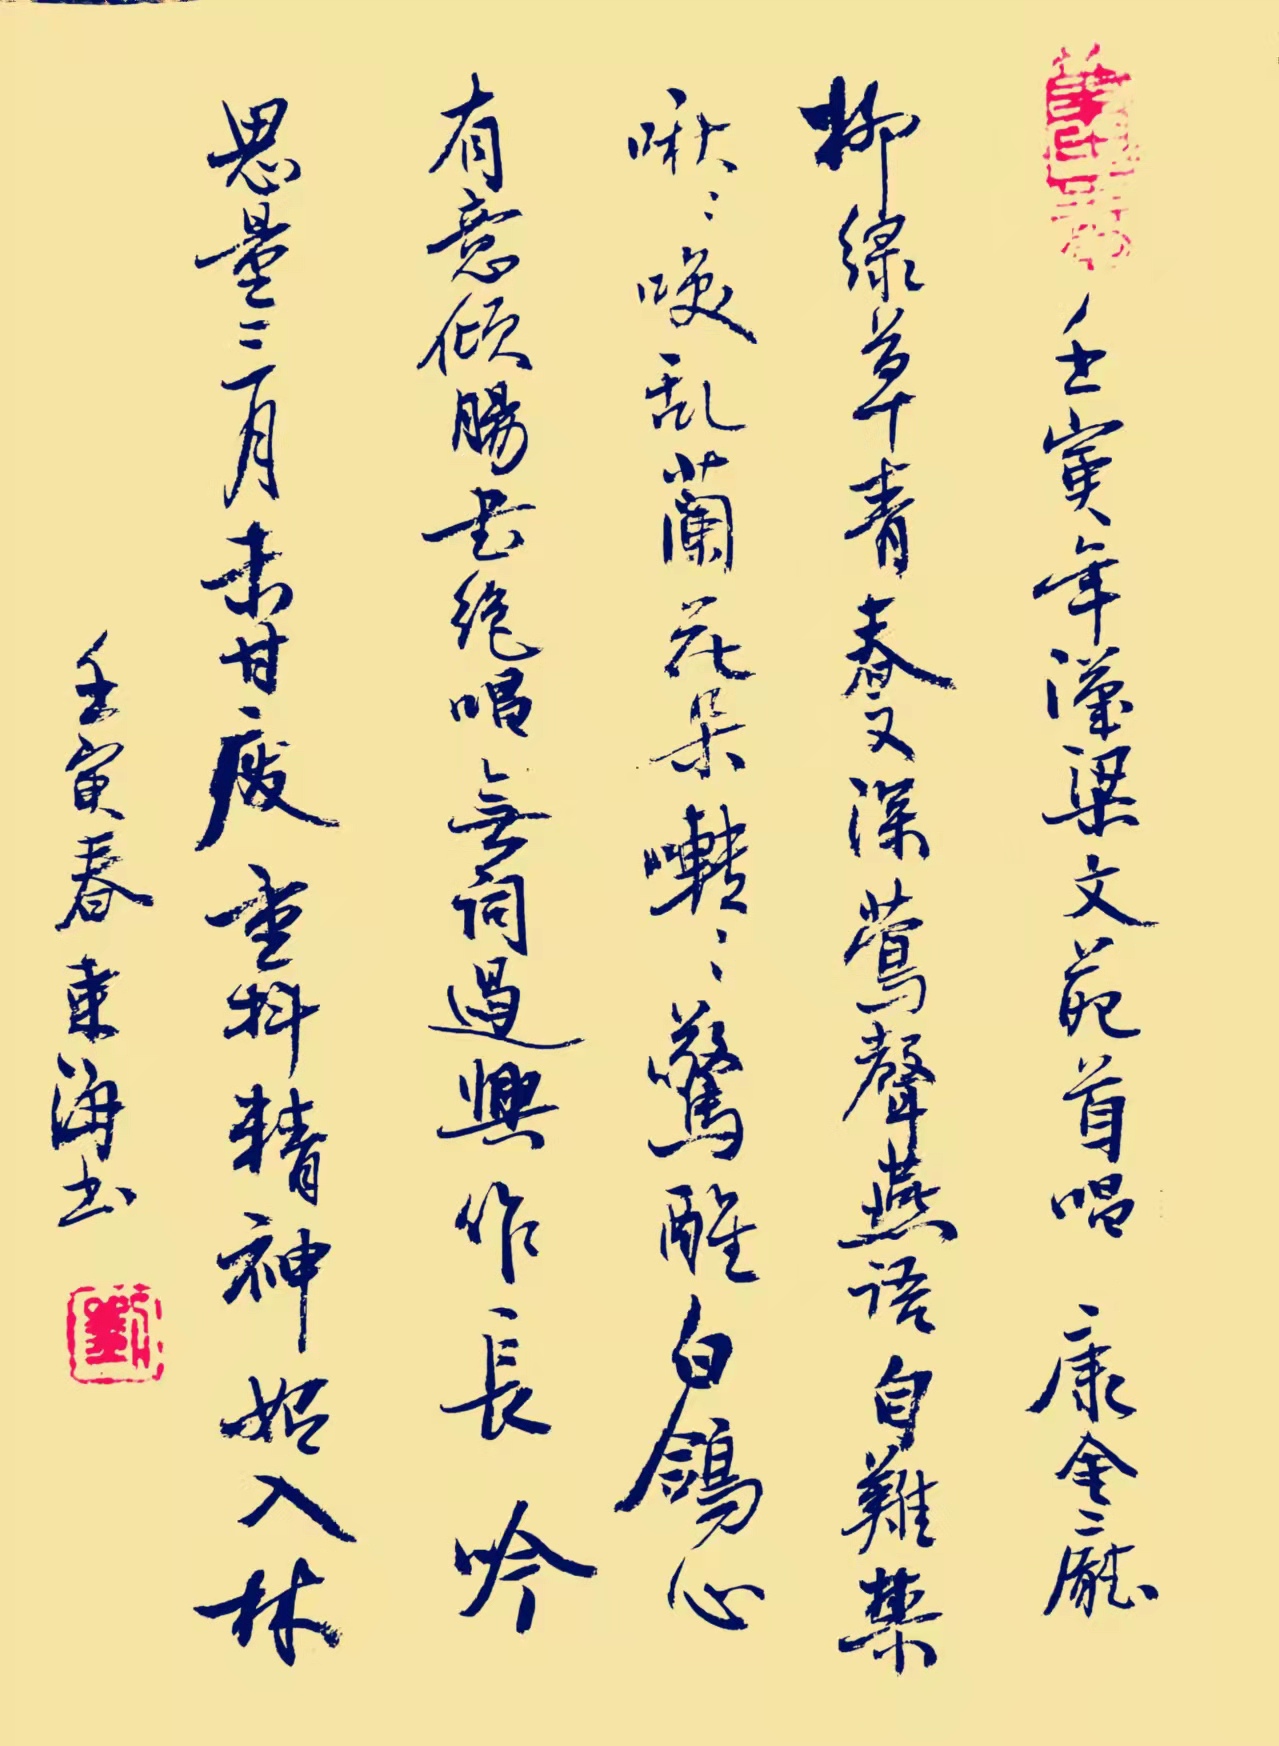 壬寅年漢梁文苑首唱 康金龐
柳綠草青春又深鶯聲燕語自難禁
啾々喚乱蘭花朵囀々驚醒白鴿心
有意傾腸書絕唱無詞過興作長吟
思量三月未甘废重抖精神始入林
壬寅春東海书